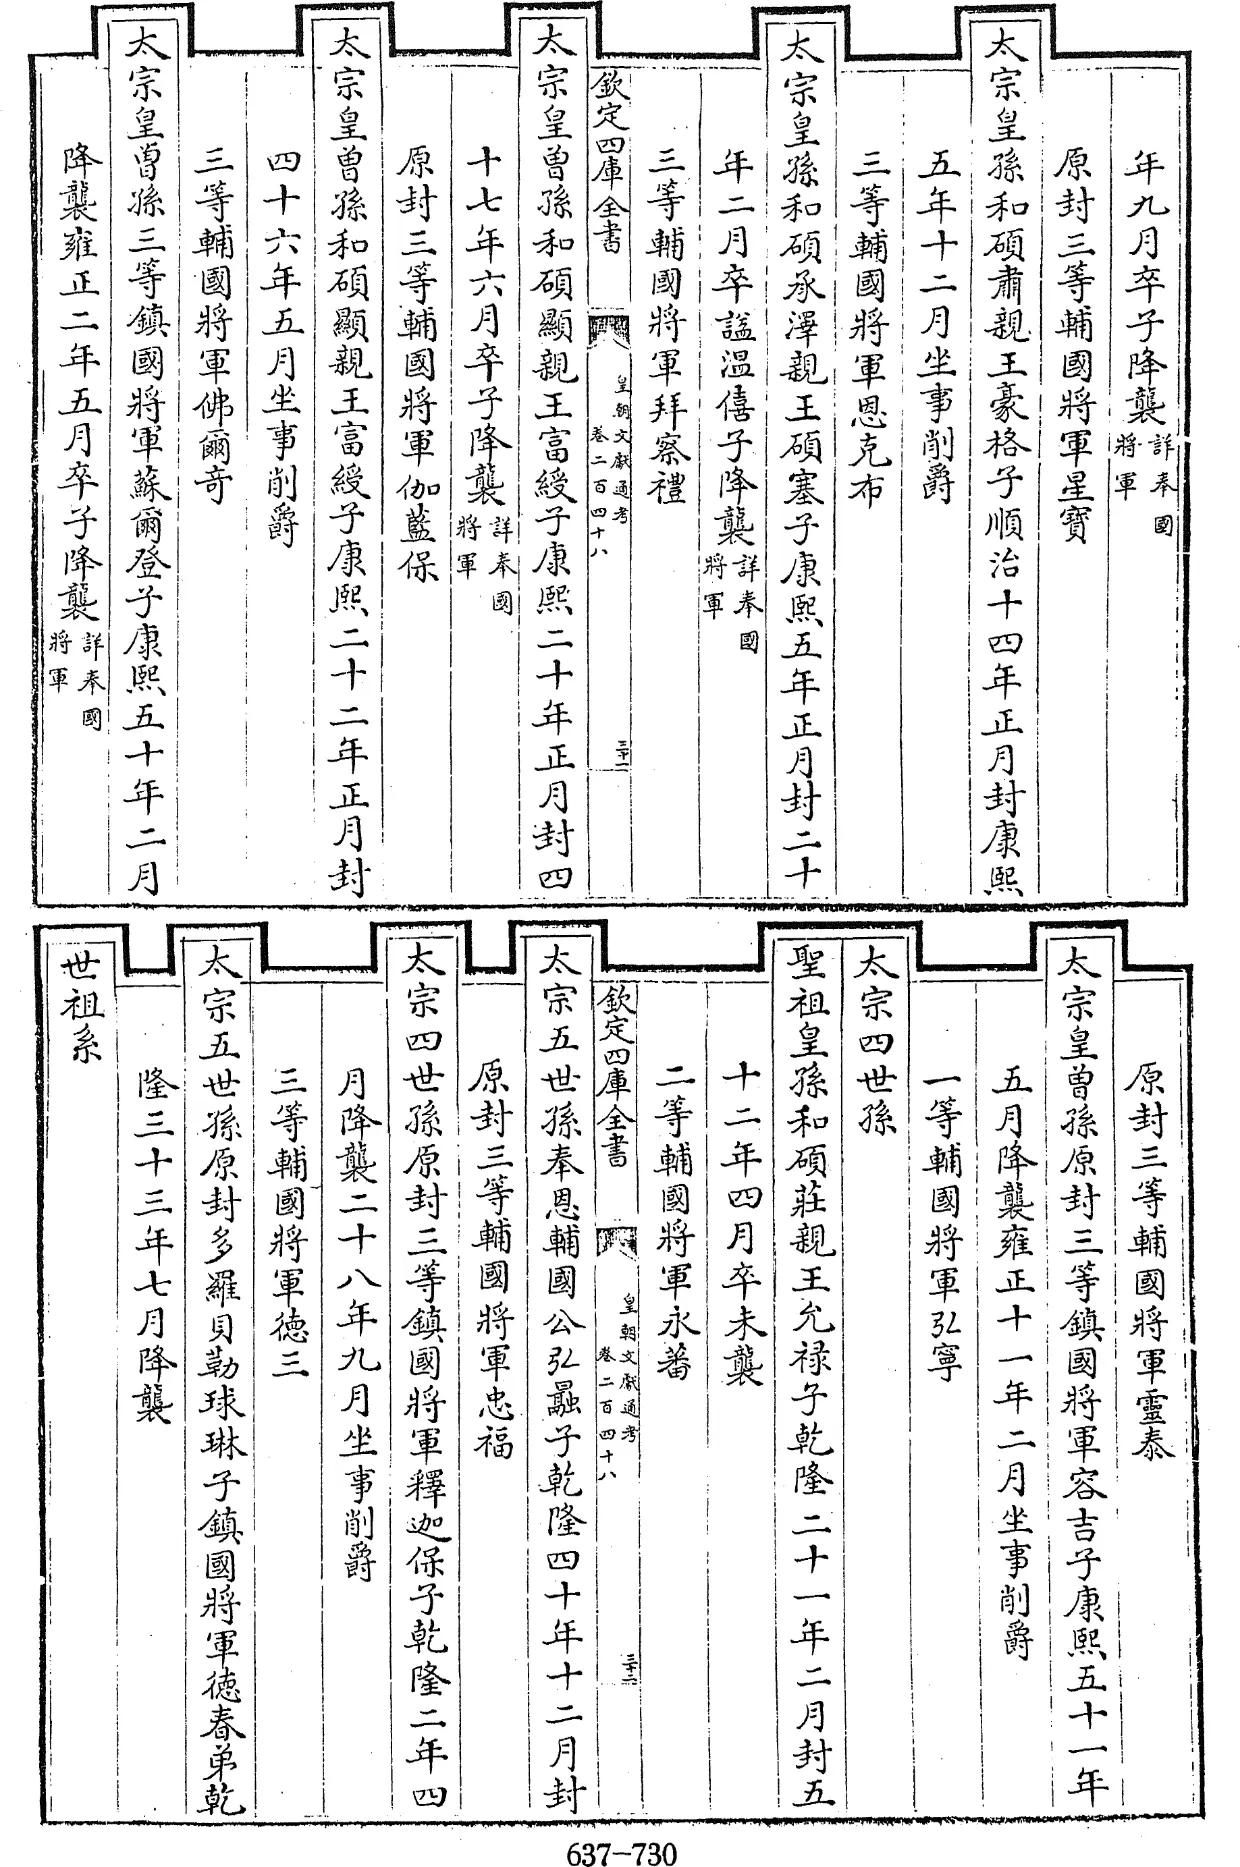 年九月卒子降襲詳奉國將軍
原封三等輔國將軍星寳
太宗皇孫和碩肅親王豪格子順治十四年正月封康熙
五年十二月坐事削爵
三等輔國將軍恩克布
太宗皇孫和碩承澤親王碩塞子康熙五年正月封二十
年二月卒諡温僖子降襲詳奉國將軍
三等輔國將軍拜察禮
欽定四庫全書
皇朝文獻通考
卷二百四十八
三十一
太宗皇曾孫和碩顯親王富綬子康熙二十年正月封四
十七年六月卒子降襲詳奉國將軍
原封三等輔國將軍伽藍保
太宗皇曾孫和碩顯親王富綬子康熙二十二年正月封
四十六年五月坐事削爵
三等輔國將軍佛爾竒
太宗皇曾孫三等鎮國將軍蘇爾登子康熙五十年二月
降襲雍正二年五月卒子降襲詳奉國將軍
原封三等輔國將軍靈泰
太宗皇曾孫原封三等鎮國將軍容吉子康熙五十一年
五月降襲雍正十一年二月坐事削爵
一等輔國將軍弘寧
太宗四世孫
聖祖皇孫和碩莊親王允禄子乾隆二十一年二月封五
十二年四月卒未襲
二等輔國將軍永蕃
欽定四庫全書
皇朝文獻通考
卷二百四十八
三十二
太宗五世孫奉恩輔國公弘䡾子乾隆四十年十二月封
原封三等輔國將軍忠福
太宗四世孫原封三等鎮國將軍釋迦保子乾隆二年四
月降襲二十八年九月坐事削爵
三等輔國將軍徳三
太宗五世孫原封多羅貝勒球琳子鎮國將軍徳春弟乾
隆三十三年七月降襲
世祖系
637-730